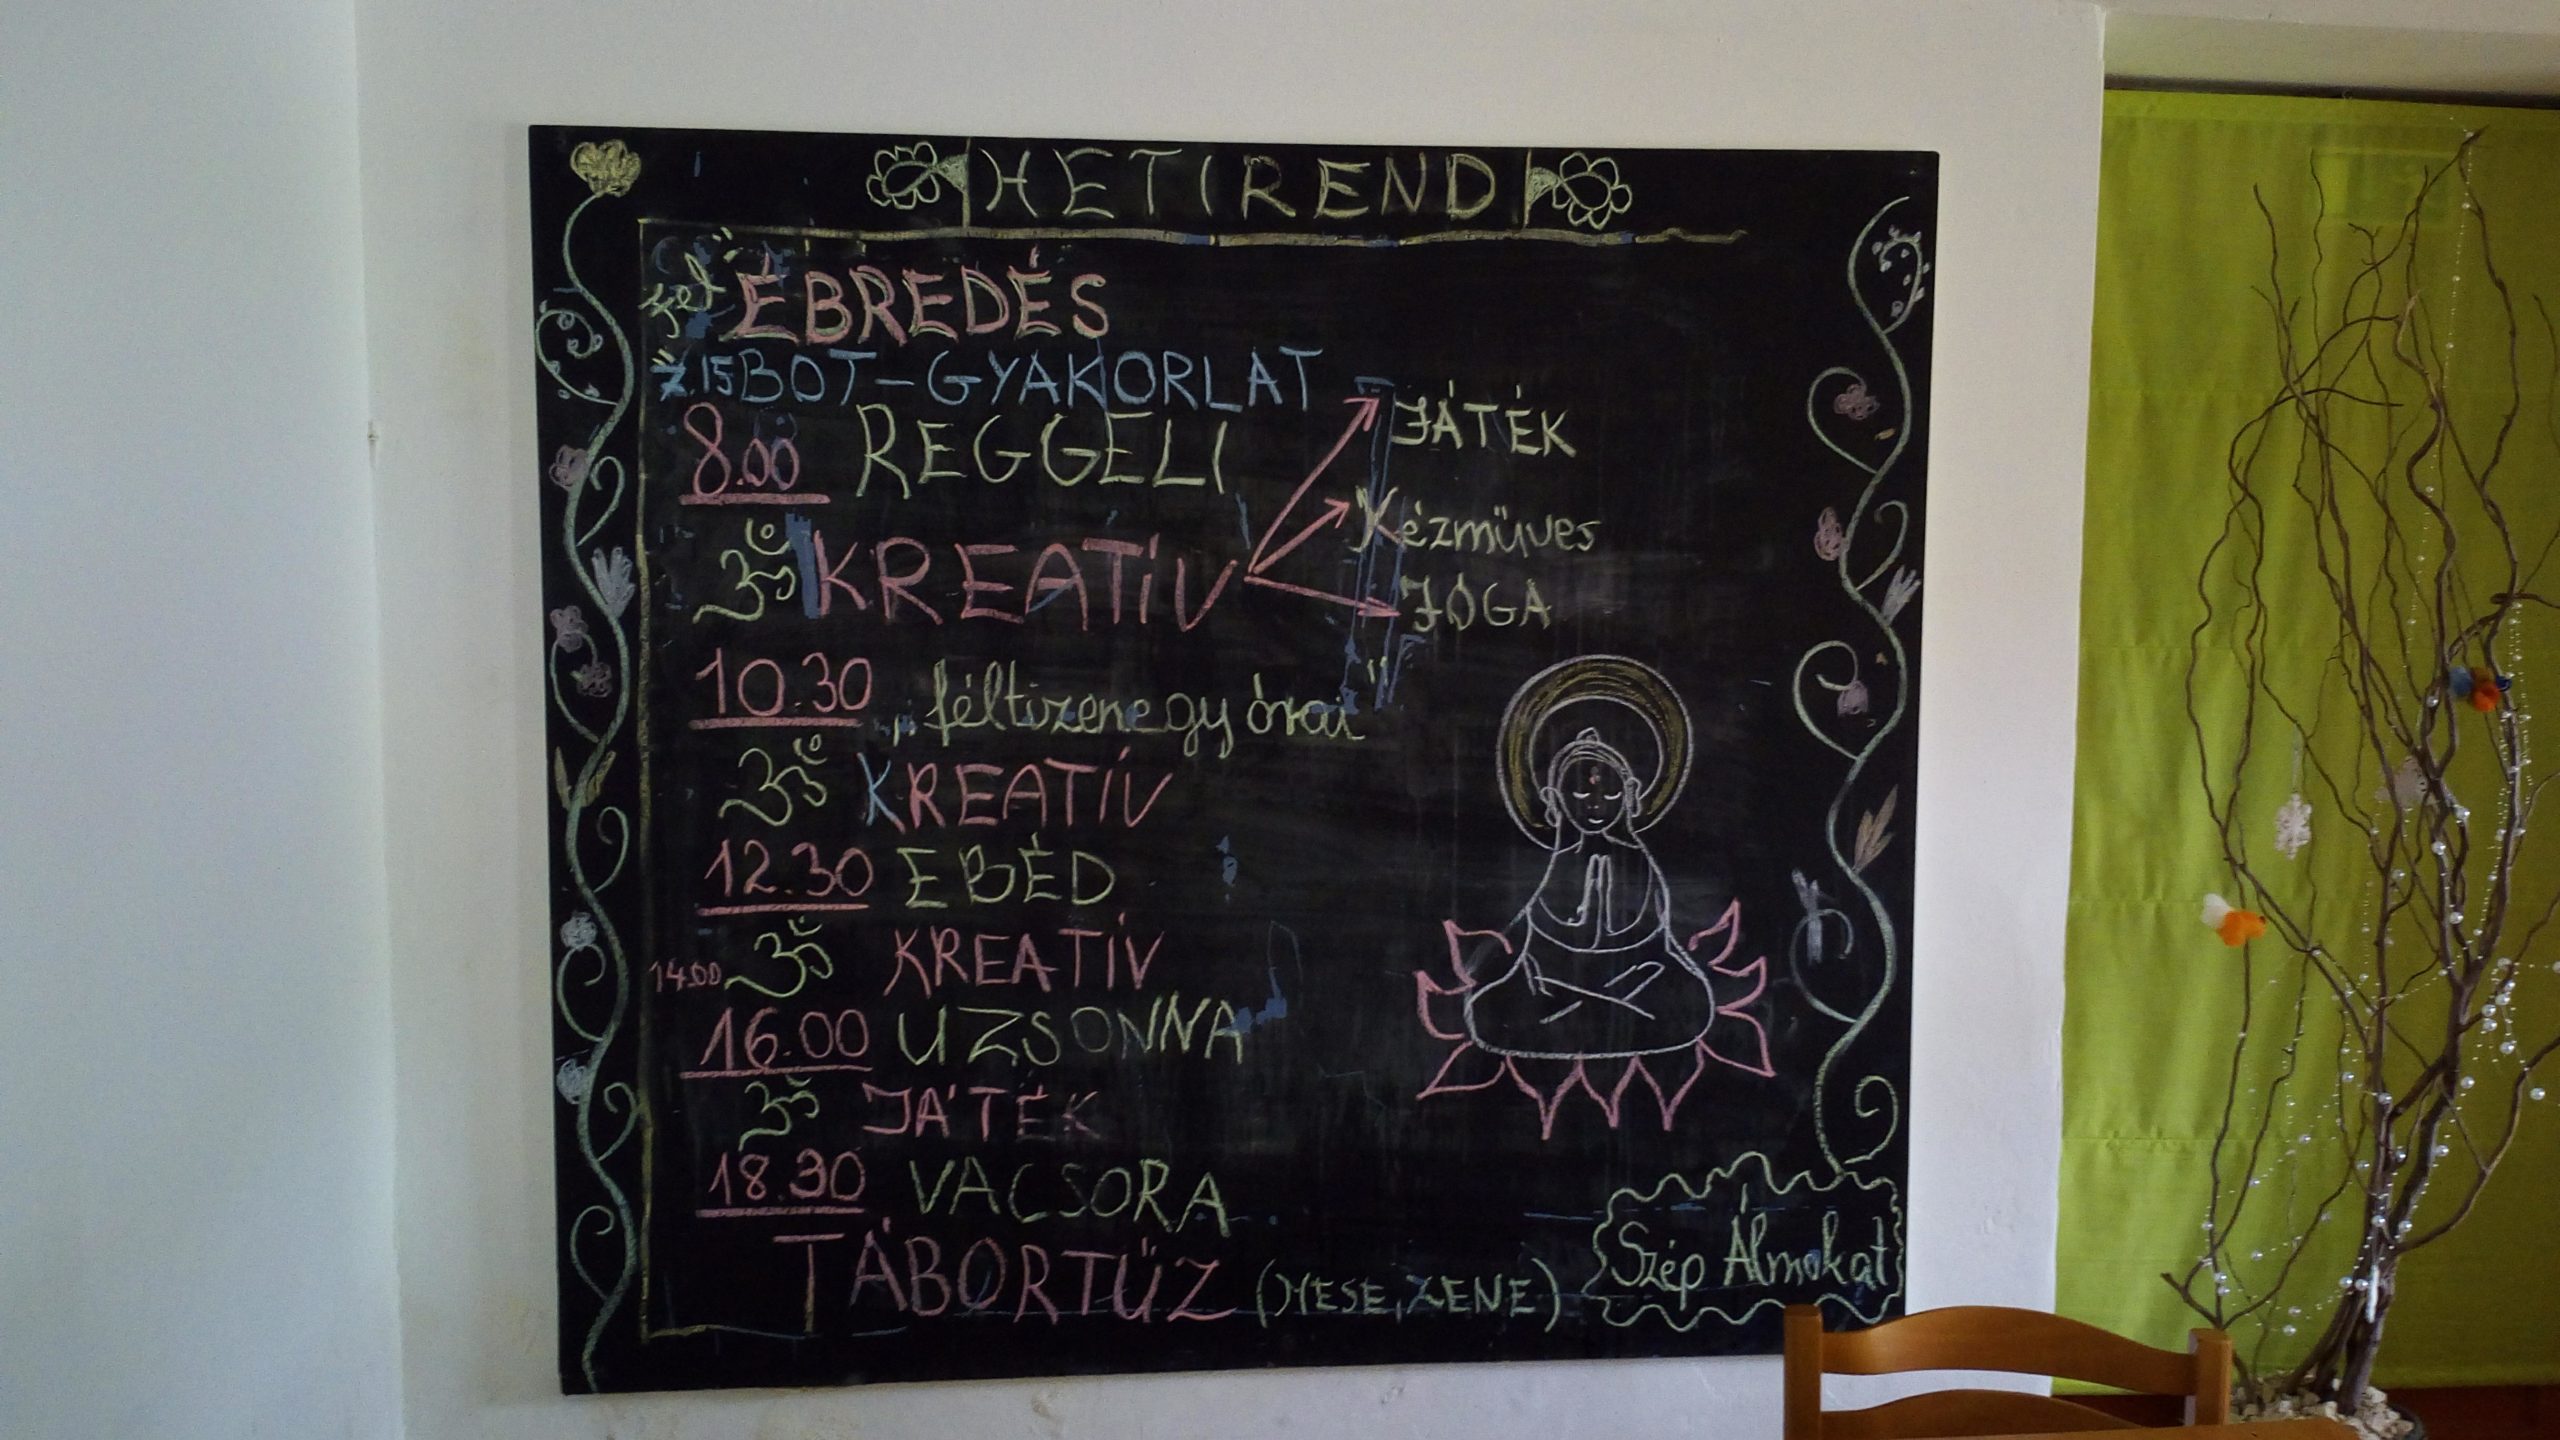 HETIREND
fel" ÉBREDÉS
7.15 BOT-GYAKORLAT
8.00 REGGELI
ॐ KREATÍV
JÁTÉK
Kézműves
JÓGA
10.30 „féltizenegy órai"
ॐ KREATÍV
12.30 EBÉD
14.00 ॐ KREATÍV
16.00 UZSONNA
ॐ JÁTÉK
18.30 VACSORA
TÁBORTŰZ (MESE, ZENE)
Szép Álmokat